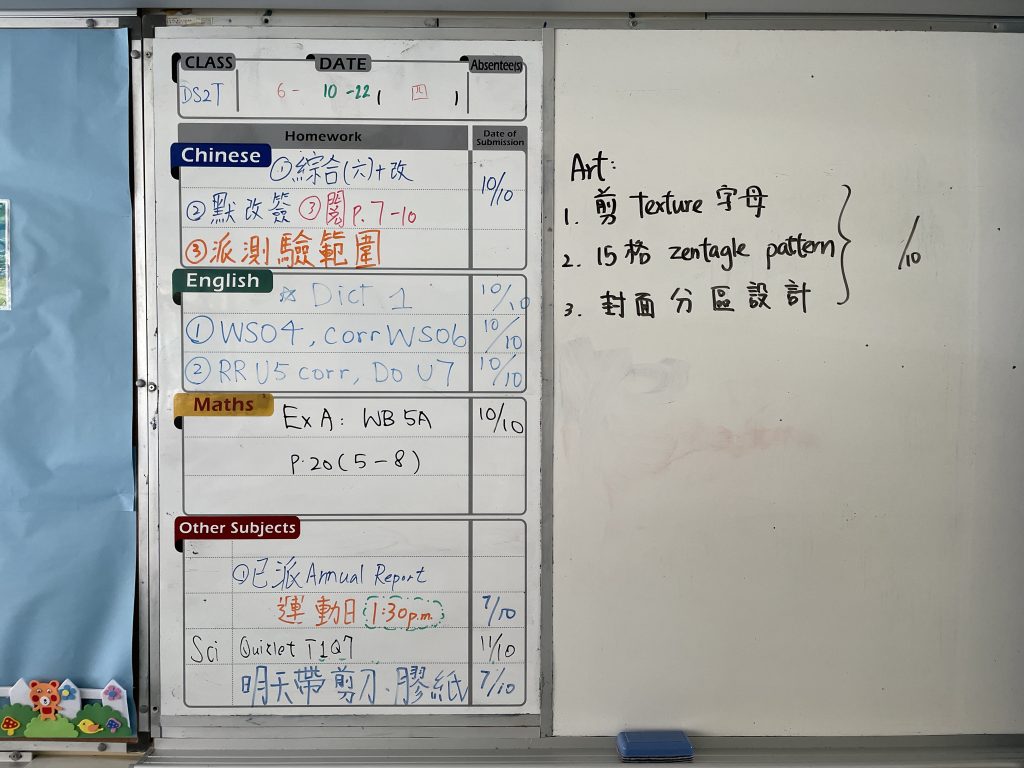 CLASS DATE Absentee(s)
DS2T 6-10-22 (四)
Homework Date of Submission
Chinese ①綜合(六)+改 10/10
②默改簽 ③閱P.7-10
③派測驗範圍
English ☆Dict 1 10/10
①WS04, corrWS06 10/10
②RR U5 corr, Do U7 10/10
Maths Ex A: WB 5A 10/10
P.20(5-8)
Other Subjects
①已派Annual Report
運動日 1:30p.m. 7/10
Sci Quizlet T1Q7 11/10
明天帶剪刀、膠紙 7/10
Art:
1. 剪 texture 字母
2. 15格 zentagle pattern /10
3. 封面分區設計